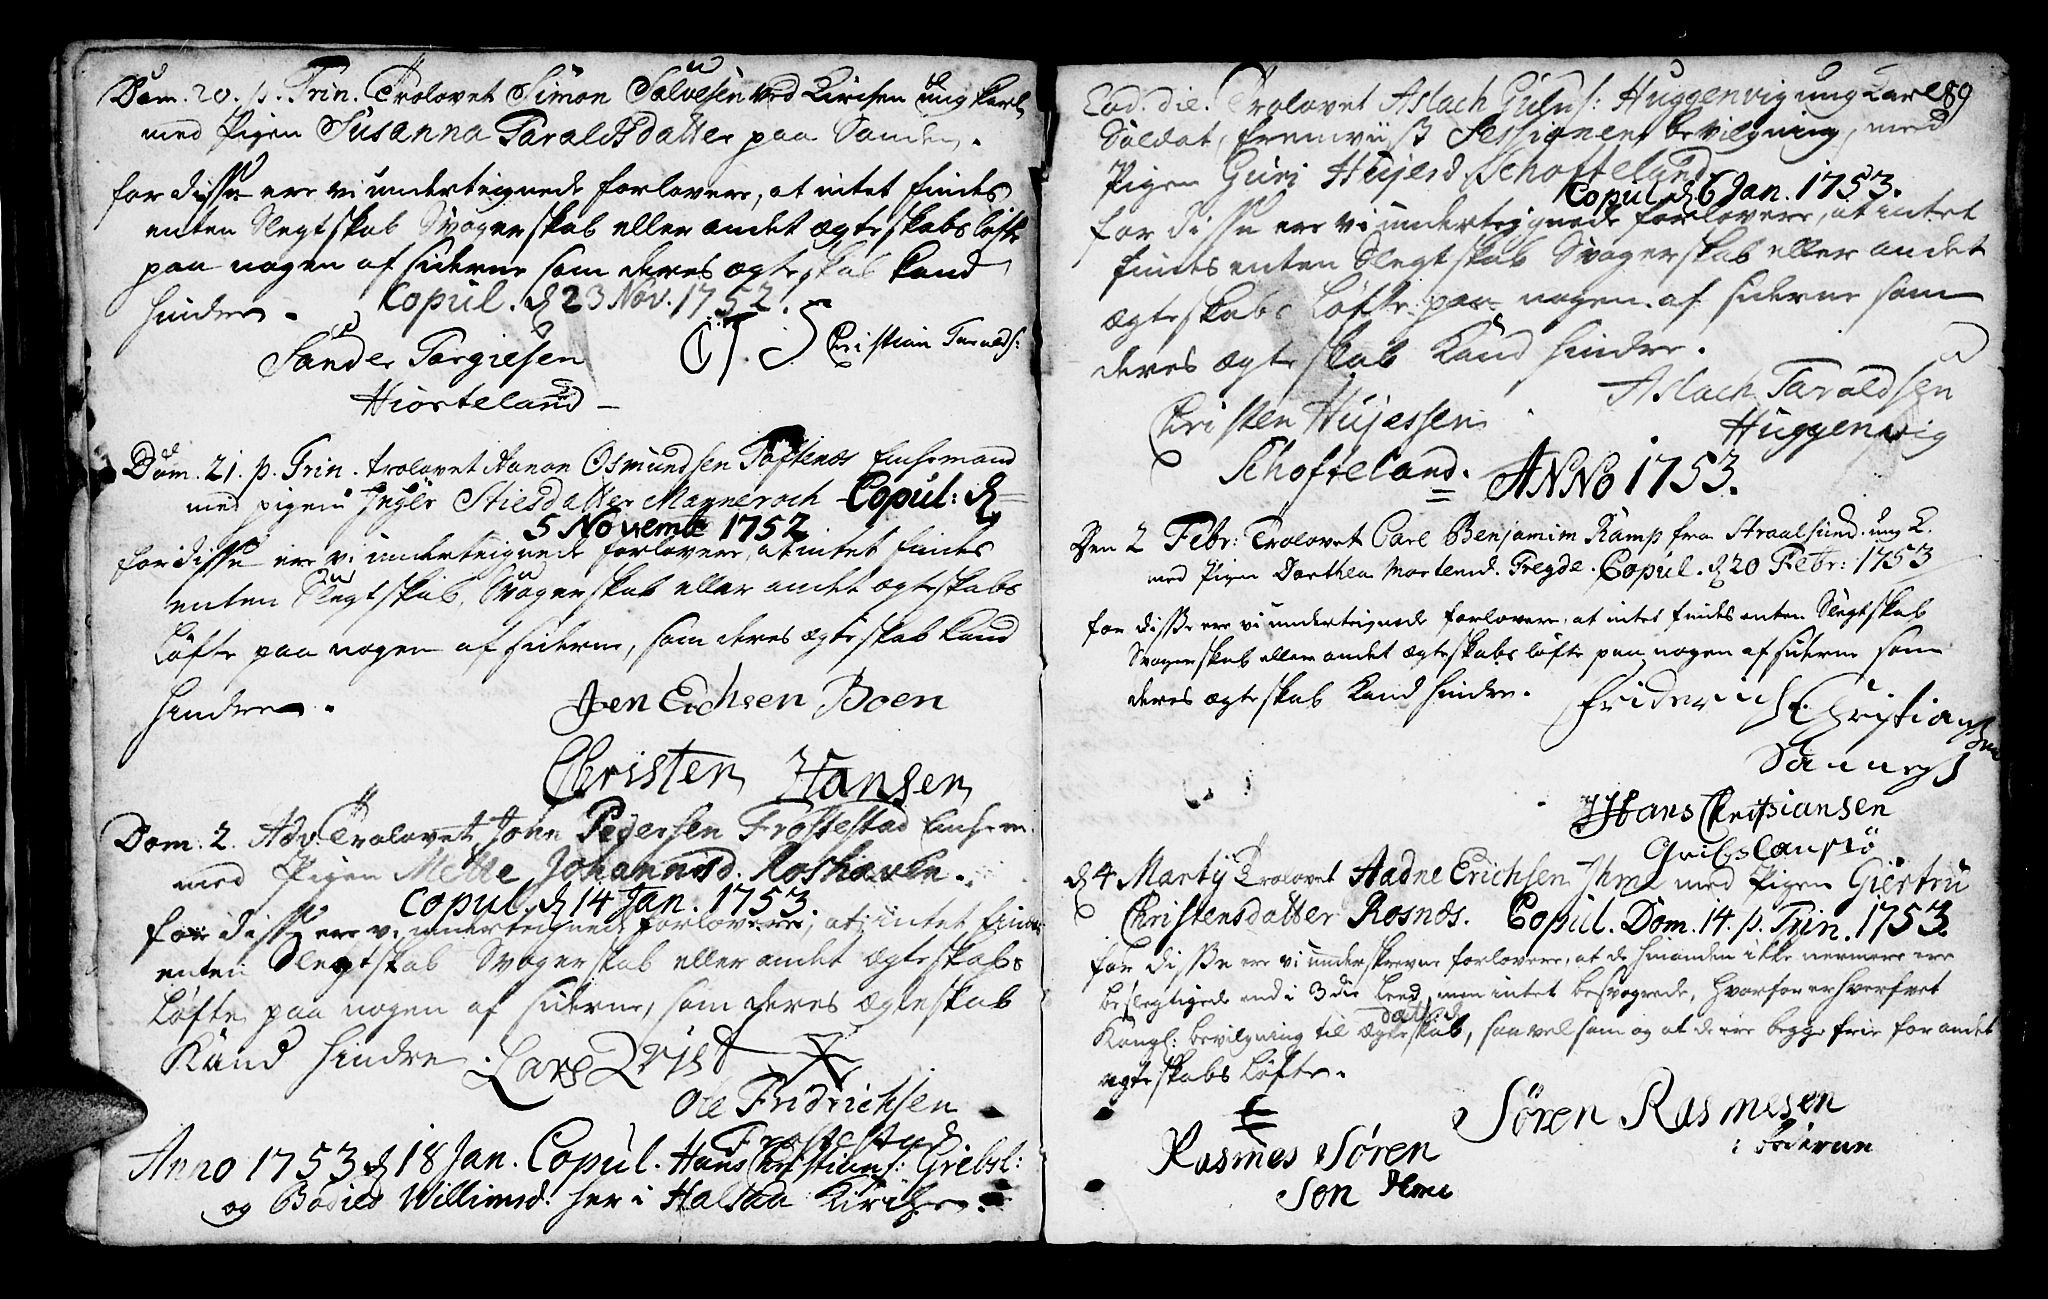 Dom. 20. p. Trin. Trolovet Simon Salvesen ved Kirchen ung karl
med Pigen Susanna Taraldsdatter paa Sanden.
for disse ere vi underteignede forlovere, at intet findes
enten Slegtskab Svogerskab eller andet ægteskabs løfte
paa nogen af siderne som deres ægteskab kand
hindre. Copul. d. 23 Nov. 1752.
Sander Targiesen
C T. S Christian Taralds:
Hiorteland
Dom. 21. p. Trin. trolovet Aanon Osmundsen Toftenæs Enchemand
med pigen Inger Stiesdatter Manneroch Copul: d.
5 Novemb 1752
for disse ere vi underteignede forlovere, at intet findes
enten Slegtskab, Svogerskab eller andet ægteskabs
Løfte paa nogen af siderne, som deres ægteskab kand
hindre.
Jen Erichsen Boen
Christen Hansen
Dom. 2. Adv. Trolovet John Pedersen Frostestad Enchem.
med Pigen Mette Johannisd. Roshaven.
Copul. d. 14 Jan. 1753.
for disse ere vi underteignede forlovere, at intet findes
enten Slegtskab Svogerskab eller andet ægteskabs
Løfte paa nogen af siderne, som deres ægteskab
Kand hindre. Lars
Ole Fridrichsen
Frostestad
Anno 1753 d. 18 Jan. Copul. Hans Christians: Gribsl:
og Bodied Willumsd. her i Halsaa Kirche.
89
Eod. die. Trolovet Aslach Gulus: Huggenvig ung Karl
Soldat, fremviist Sessionens bevilgning, med
Pigen Guri Hujesd. Schofteland
Copul. d. 6 Jan. 1753.
for disse ere vi underteignede forlovere, at intet
findes enten Slegtskab Svogerskab eller andet
ægteskabs Løfte paa nogen af siderne som
deres ægteskab Kand hindre.
Aslach Taraldsen
Huggenvig
Christen Hujessen
Schofteland.
ANNO 1753.
Den 2 Febr: Trolovet Carl Benjamim Kamp fra Straalsund. ung K.
med Pigen Dorthea Mortensd. Tregde. Copul. d. 20 Febr: 1753
for disse ere vi underteignede forlovere, at intet findes enten Slegtskab
Svogerskab eller andet ægteskabs løfte paa nogen af siderne som
deres ægteskab Kand hindre.
Friderich Christiansen
Hans Christiansen
Gribsland
d. 4 Martij Trolovet Aadne Erichsen Ihme med Pigen Giertru
Christensdatter Rosnæs. Copul. Dom. 14. p. Trin. 1753.
for disse ere vi underskrevne forlovere, at de hinanden ikke nermere ere
beslegtigede end i 3die Leed, men intet besvogrede, hvorfor erhvervet
Kongl: bevilgning til ægteskab, saavel som og at de ere begge frie for andet
ægteskabs Løfte.
Søren Rasmesen
Rasmes Søren
Søn Ihme